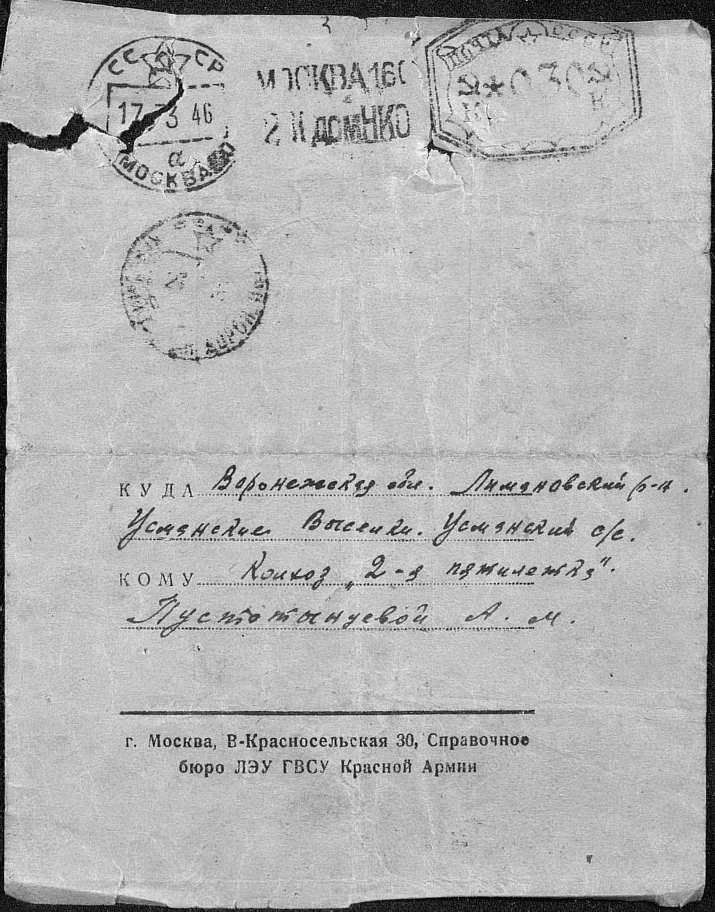 СССР
17 3 46
а
МОСКВА
МОСКВА 160
2й ДОМ НКО
ПОЧТА СССР
030
К К
КУДА Воронежская обл. Лимановский р-н.
Усманские Выселки. Усманский с/с.
КОМУ Колхоз „2-я пятилетка".
Пустотынцевой А. М.
г. Москва, В-Красносельская 30, Справочное
бюро ЛЭУ ГВСУ Красной Армии